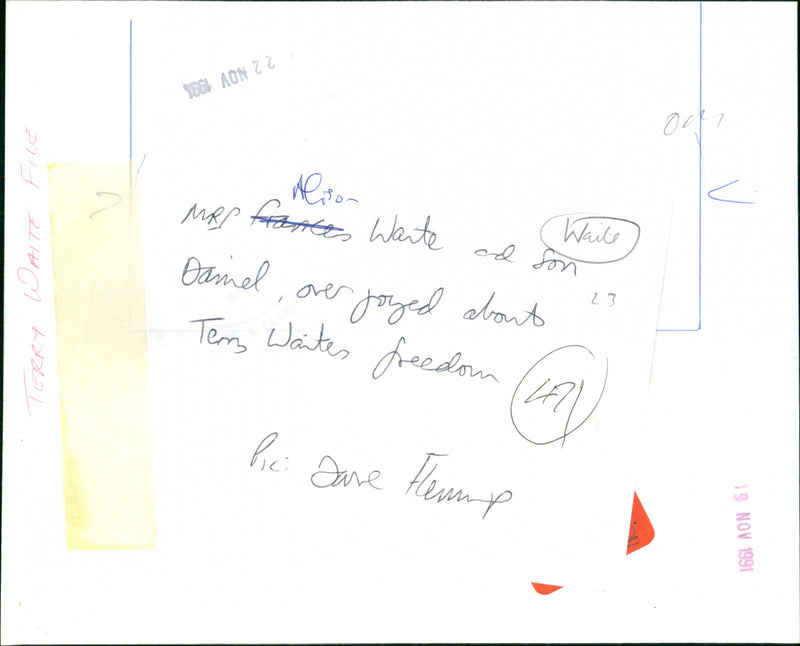 22 NOV 1991
TERRY WAITE FILE
Alison
MRS Frances Waite and Son
Waite
Daniel, over joyed about
23
Terry Waites freedom
471
Pic: Dave Fleming
19 NOV 1991